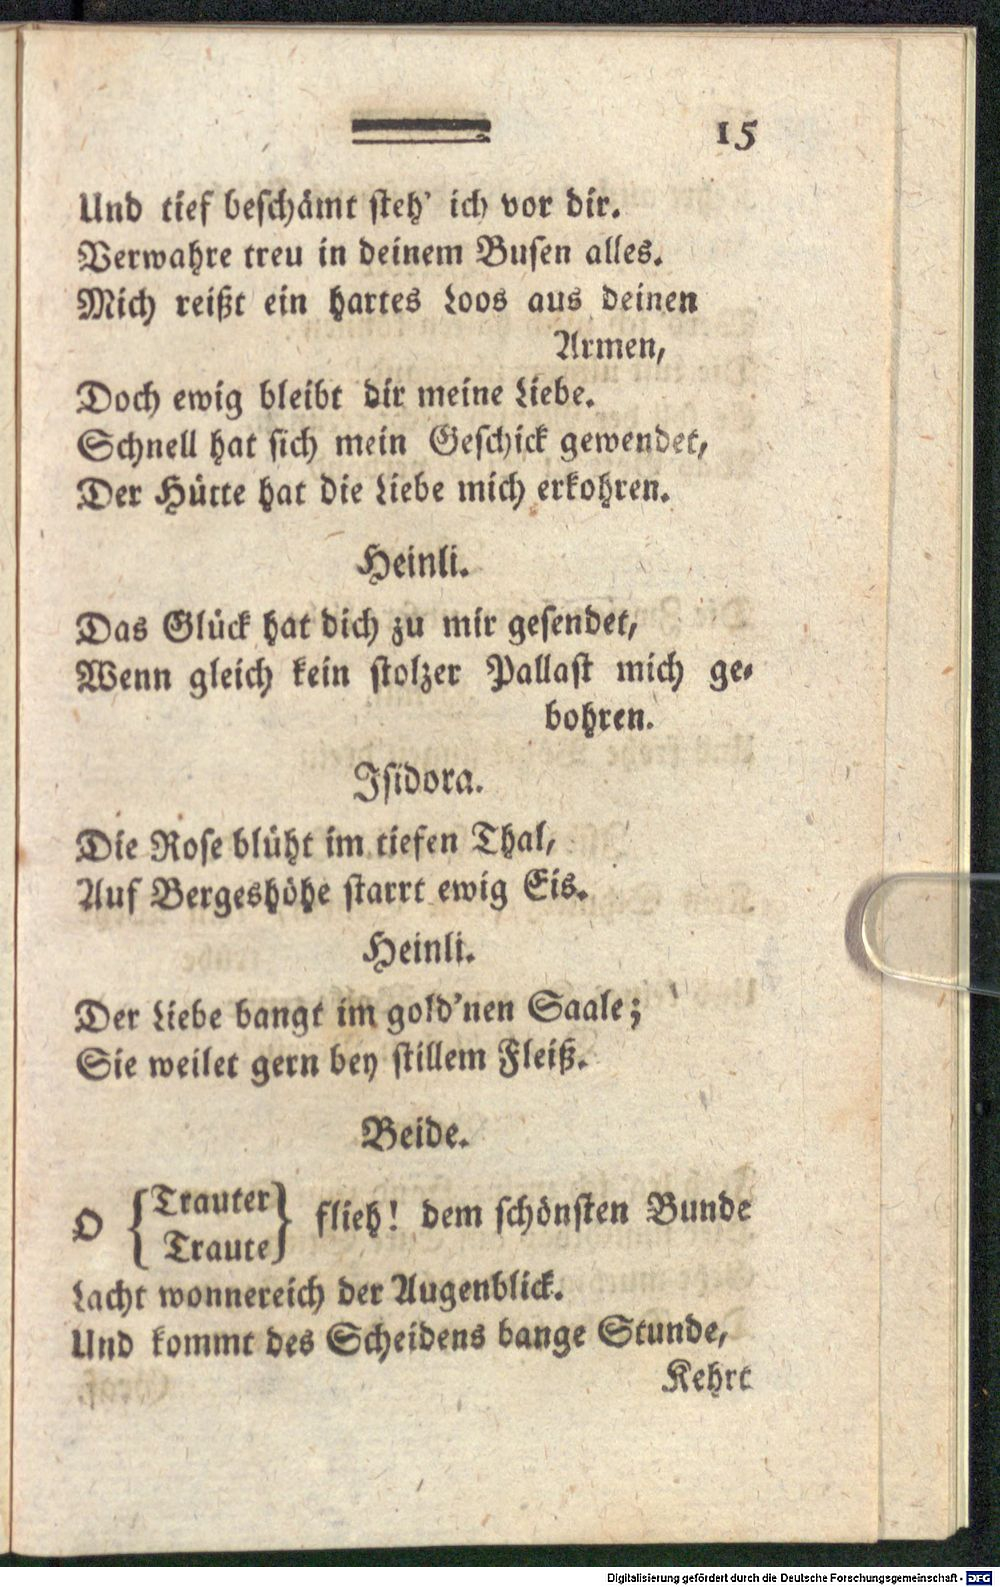 15
Und tief beschämt steh' ich vor dir.
Verwahre treu in deinem Busen alles.
Mich reißt ein hartes Loos aus deinen
Armen,
Doch ewig bleibt dir meine Liebe.
Schnell hat sich mein Geschick gewendet,
Der Hütte hat die Liebe mich erkohren.
Heinli.
Das Glück hat dich zu mir gesendet,
Wenn gleich kein stolzer Pallast mich ge-
bohren.
Isidora.
Die Rose blüht im tiefen Thal,
Auf Bergeshöhe starrt ewig Eis.
Heinli.
Der Liebe bangt im gold'nen Saale;
Sie weilet gern bey stillem Fleiß.
Beide.
O {Trauter
Traute} flieh! dem schönsten Bunde
Lacht wonnereich der Augenblick.
Und kommt des Scheidens bange Stunde,
Kehrt
Digitalisierung gefördert durch die Deutsche Forschungsgemeinschaft - DFG